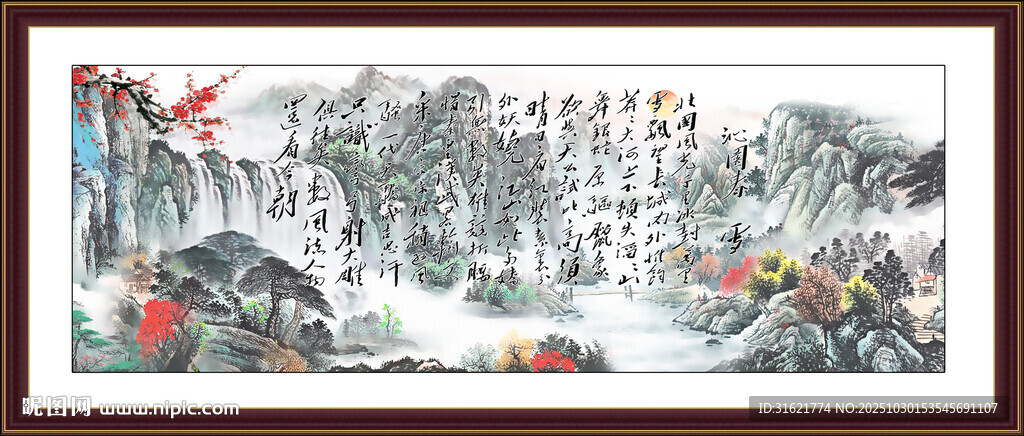 沁园春 雪
北国风光千里冰封万里
雪飘望长城内外惟余
莽莽大河上下顿失滔滔山
舞银蛇原驰蜡象
欲与天公试比高须
晴日看红装素裹分
外妖娆江山如此多娇
引无数英雄竞折腰
惜秦皇汉武略输文
采唐宗宋祖稍逊风
骚一代天骄成吉思汗
只识弯弓射大雕
俱往矣数风流人物
还看今朝
昵图网 www.nipic.com
ID:31621774 NO:20251030153545691107